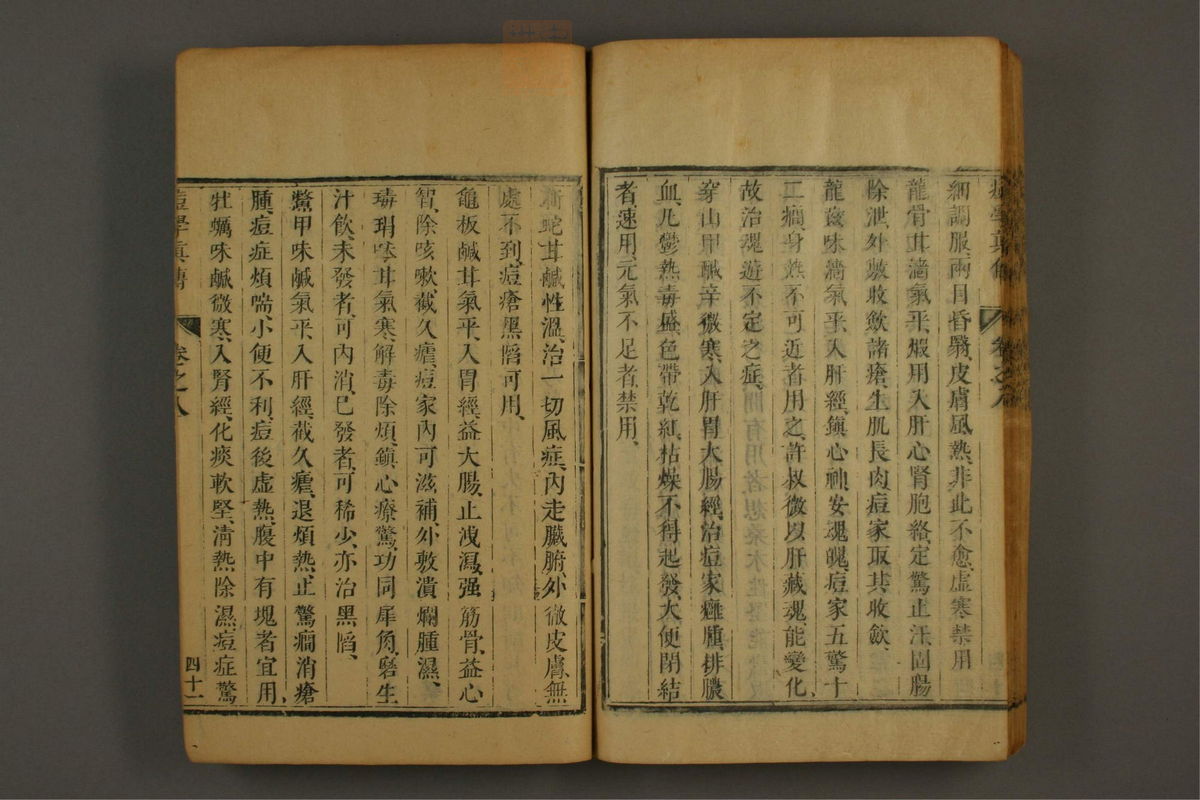 細調服兩目昏翳皮膚風熱非此不愈虛寒禁用
龍骨甘濇氣平煆用入肝心腎胞絡定驚止汗固腸
除泄外墢收歛諸瘡生肌長肉痘家取其收歛
龍齒味濇氣平入肝經鎮心神安魂魄痘家五驚十
二癎身熱不可近者用之許叔微以肝藏魂能變化
故治魂遊不定之症
穿山甲鹹辛微寒入肝胃大腸經治痘家癰腫排膿
血凡鬱熱毒盛色帶乾紅枯燥不得起發大便閉結
者速用元氣不足者禁用
蘄蛇甘鹹性溫治一切風症內走臟腑外徹皮膚無
處不到痘瘡黑䧟可用
龜板鹹甘氣平入胃經益大腸止洩瀉强筋骨益心
智除咳嗽截久瘧痘家內可滋補外敷潰爛腫濕
瑇瑁味甘氣寒解毒除煩鎮心療驚功同犀角磨生
汁飲未發者可內消已發者可稀少亦治黑䧟
鱉甲味鹹氣平入肝經截久瘧退煩熱止驚癎消瘡
腫痘症煩喘小便不利痘後虛熱腹中有塊者宜用
牡蠣味鹹微寒入腎經化痰軟堅淸熱除濕痘症驚
痘學眞傳 卷之八 四十一